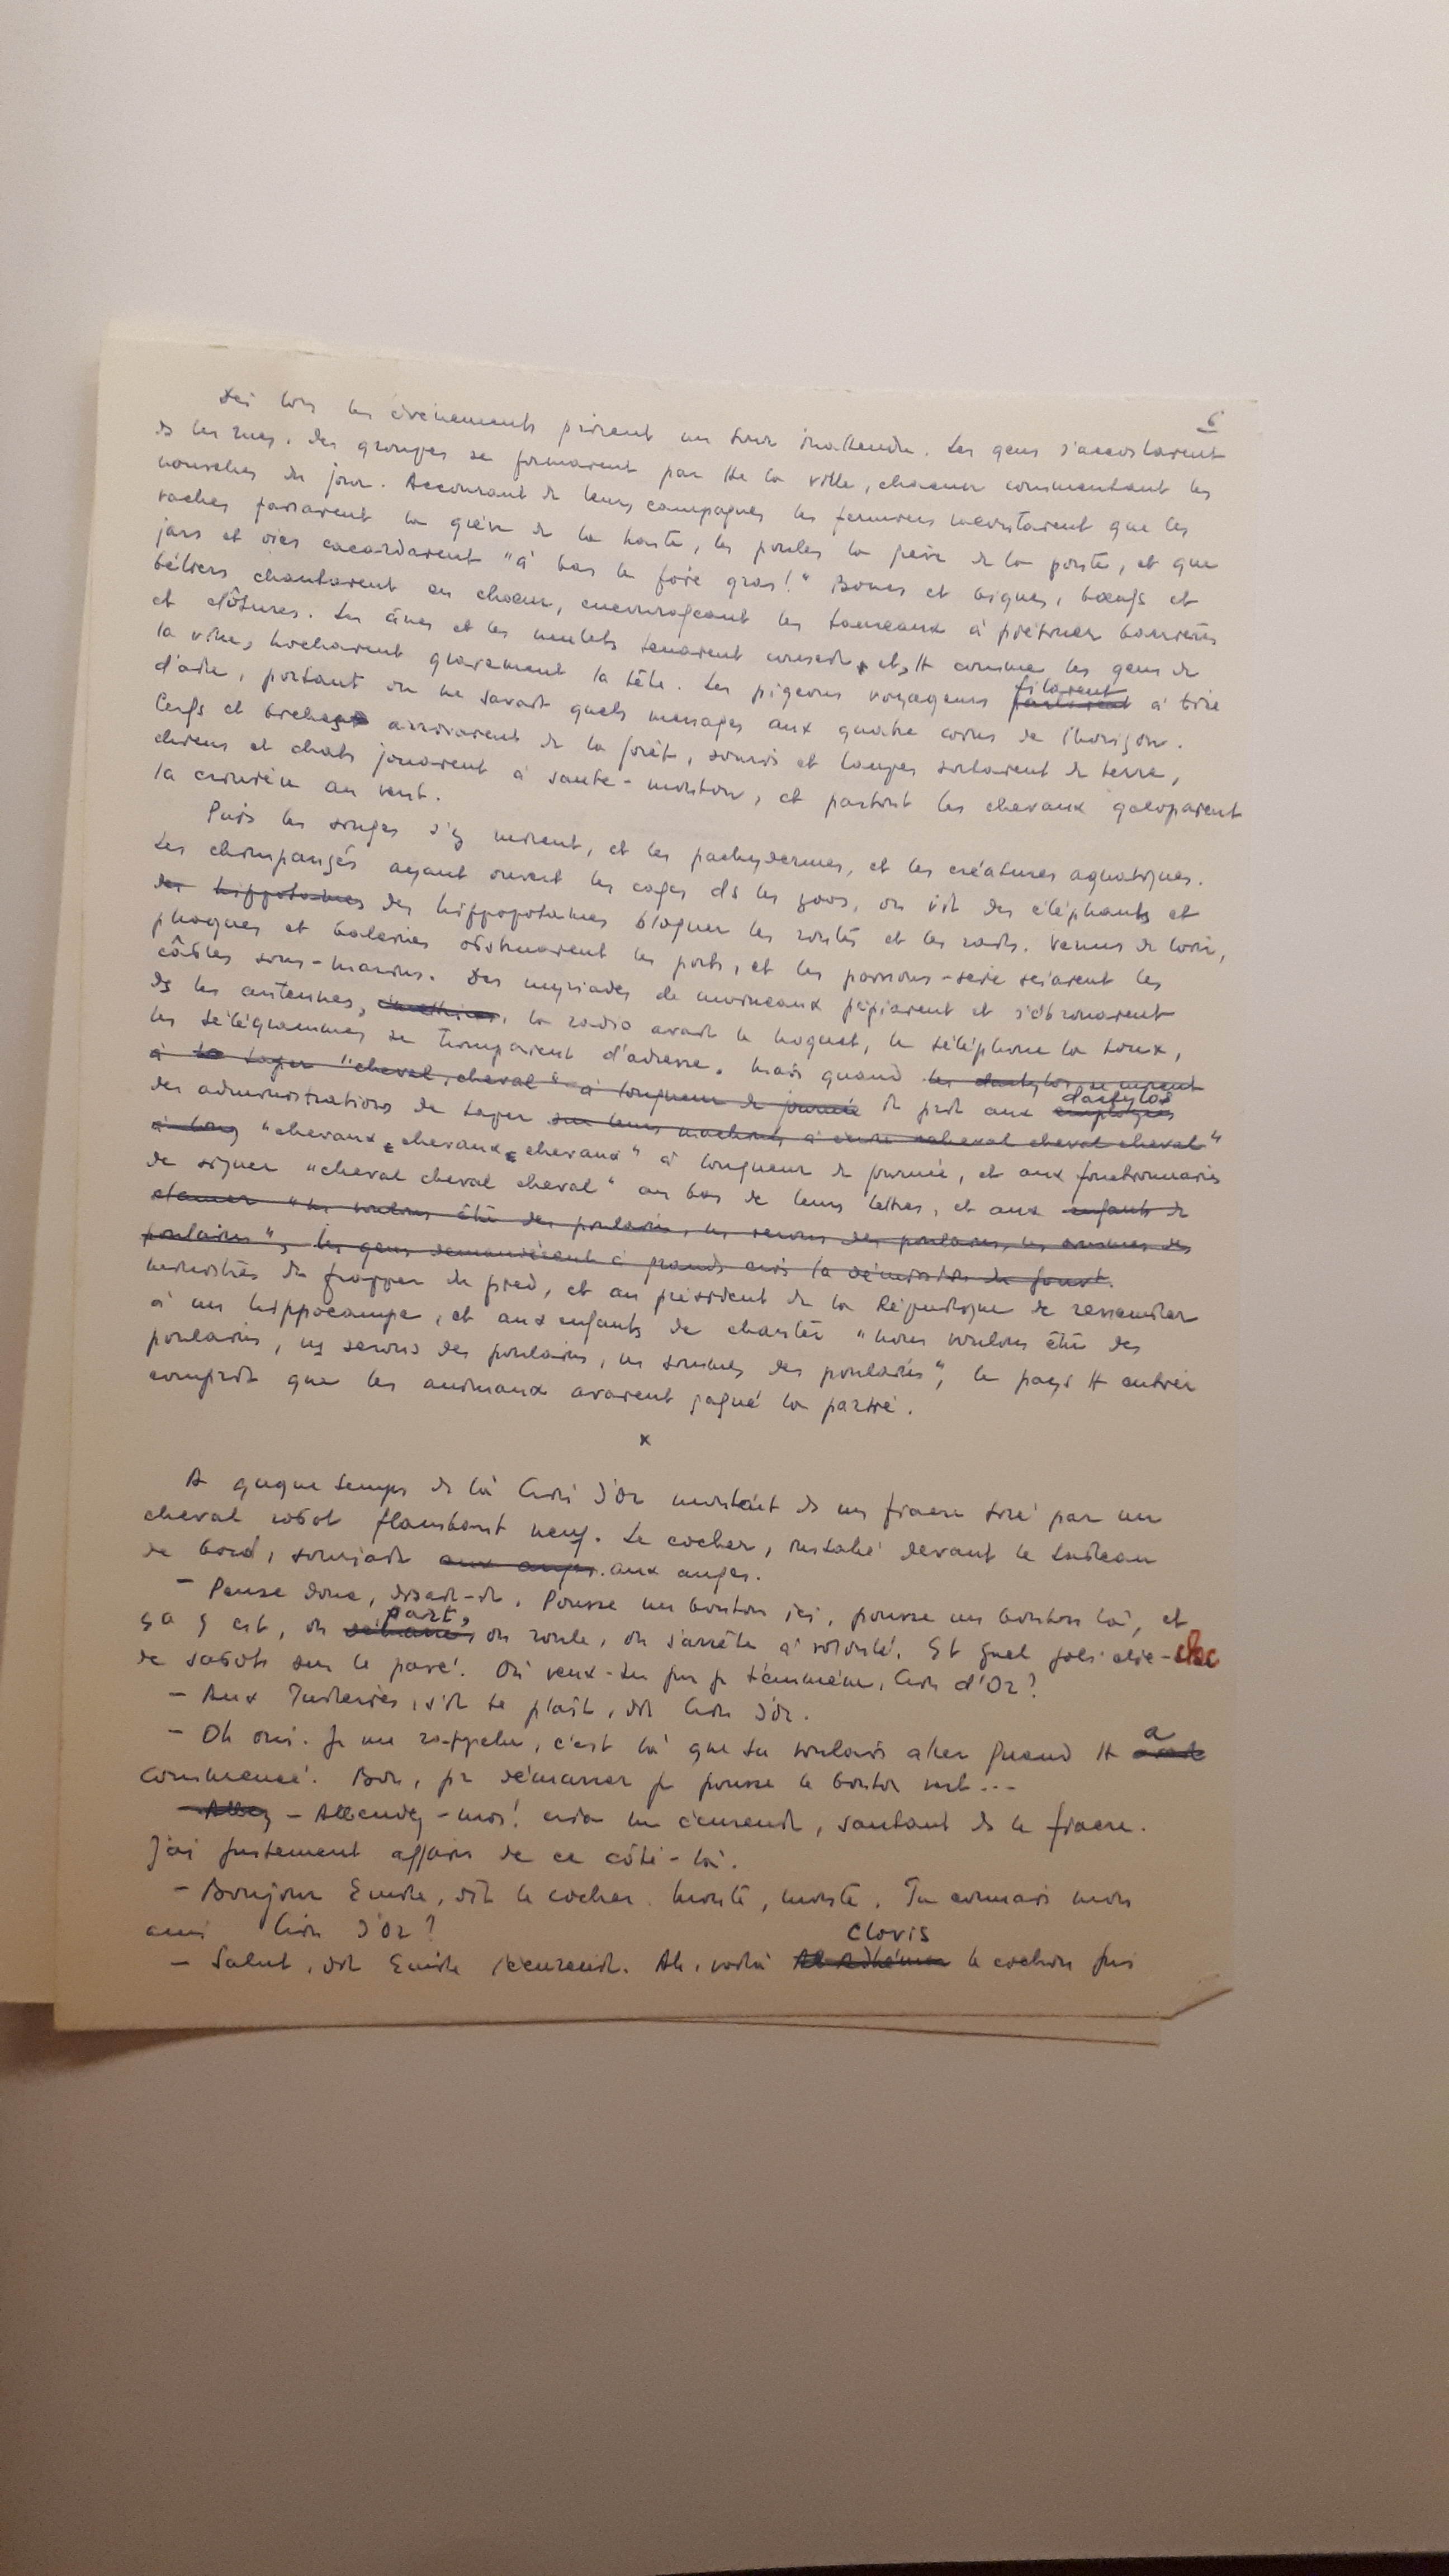 6
Dès lors les événements prirent un tour inattendu. Les gens s'accostaient
ds les rues, des groupes se formaient par tte la ville, chacun commentant les
nouvelles du jour. Accourant de leurs campagnes les fermiers racontaient que les
vaches faisaient la grève de la traite, les poules la grève de la ponte, et que
jars et oies cacardaient "à bas le foie gras!" Boucs et biques, bœufs et
béliers chantaient en chœur, encourageant les taureaux à piétiner barrières
et clôtures. Les ânes et les mulets tenaient conseil, et, tt comme les gens de
la ville, hochaient gravement la tête. Les pigeons voyageurs filaient à tire
d'aile, portant on ne savait quels messages aux quatre coins de l'horizon.
Cerfs et biches arrivaient de la forêt, souris et taupes sortaient de terre,
chiens et chats jouaient à saute-mouton, et partout les chevaux galopaient
la crinière au vent.
Puis les singes s'y mirent, et les pachydermes, et les créatures aquatiques.
Les chimpanzés ayant ouvert les cages ds les zoos, on vit des éléphants et
des hippopotames des hippopotames bloquer les routes et les rails. Venus de loin,
phoques et baleines obstruaient les ports, et les poissons-scie sciaient les
câbles sous-marins. Des myriades de moineaux pépiaient et s'ébrouaient
ds les antennes, la radio avait le hoquet, le téléphone la toux,
les télégrammes se trompaient d'adresse. Mais quand les dactylos se mirent
à taper "cheval, cheval" à longueur de journée il prit aux dactylos employées
des administrations de taper sur leurs machines à écrire cheval cheval cheval"
à long "chevaux, chevaux, chevaux" à longueur de journée, et aux fonctionnaires
de signer "cheval cheval cheval" au bas de leurs lettres, et aux enfants de
clamer "ns voulons être des poulains, ns serons des poulains, ns sommes des
poulains", les gens demandèrent à grands cris la démission du gouvt.
ministres de frapper du pied, et au président de la République de ressembler
à un hippocampe, et aux enfants de chanter "nous voulons être des
poulains, ns serons des poulains, ns sommes des poulains", le pays tt entier
comprit que les animaux avaient gagné la partie.
x
A qcque temps de là Crin d'Or montait ds un fiacre tiré par un
cheval robot flambant neuf. Le cocher, installé devant le tableau
de bord, souriait aux anges. aux anges.
- Pense donc, disait-il. Pousse un bouton ici, pousse un bouton là, et
ça y est, on part, démarre, on roule, on s'arrête à volonté. Et quel joli clic-clac
de sabots sur le pavé. Où veux-tu que je t'emmène, Crin d'Or?
- Aux Tuileries, s'il te plaît, dit Crin d'Or.
- Oh oui. Je me rappelle, c'est là que tu voulais aller quand tt a
commencé. Bon, pr démarrer je pousse le bouton vert...
- Attendez-moi! cria un écureuil, sautant ds le fiacre.
J'ai justement affaire de ce côté-là.
- Bonjour Emile, dit le cocher. Monte, monte. Tu connais mon
ami Crin d'Or?
- Salut, dit Emile l'écureuil. Ah, voilà Clovis le cochon qui